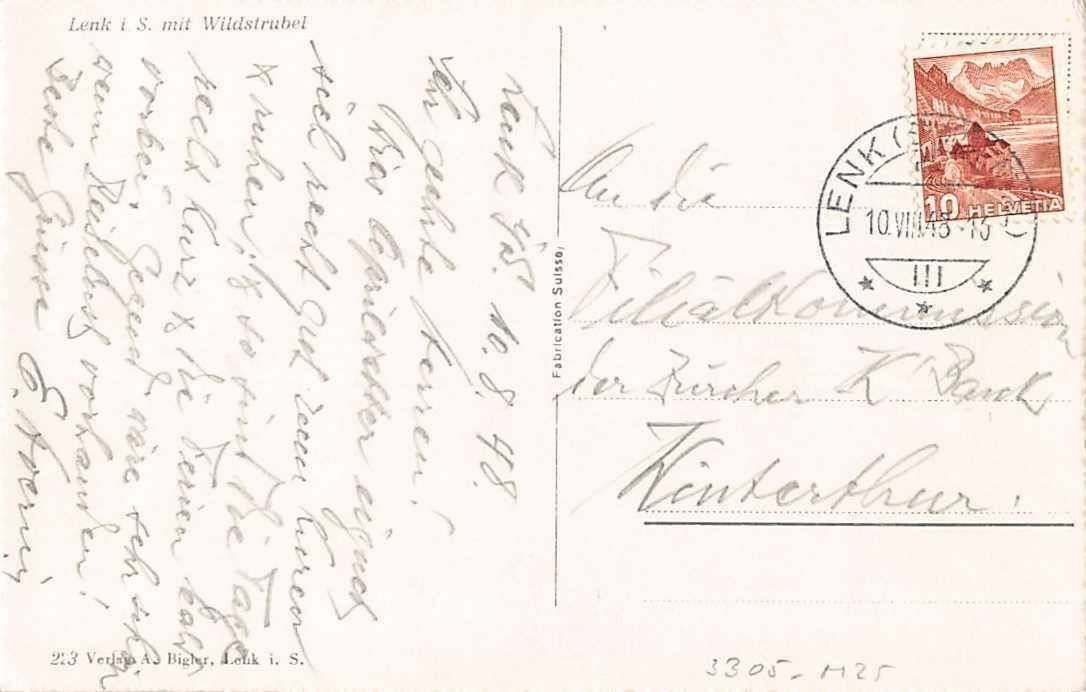 Lenk i. S. mit Wildstrubel
Lenk i/S. 10.8.48.
Sehr geehrte Herren!
Das Aprilwetter eignet
sich recht gut zum kuren
& ruhen, & so sind die Tage
recht kurz & die Ferien bald
vorbei. Gegend wäre sehr schön
wenn Reiselust vorhanden!
Beste Grüsse
Fabrication Suisse
An die
Filialkommission
der Zürcher K'Bank
Winterthur.
LENK (
10.VIII.48-13
III
10 HELVETIA
223 Verlag A. Bigler, Lenk i. S.
3305-M25